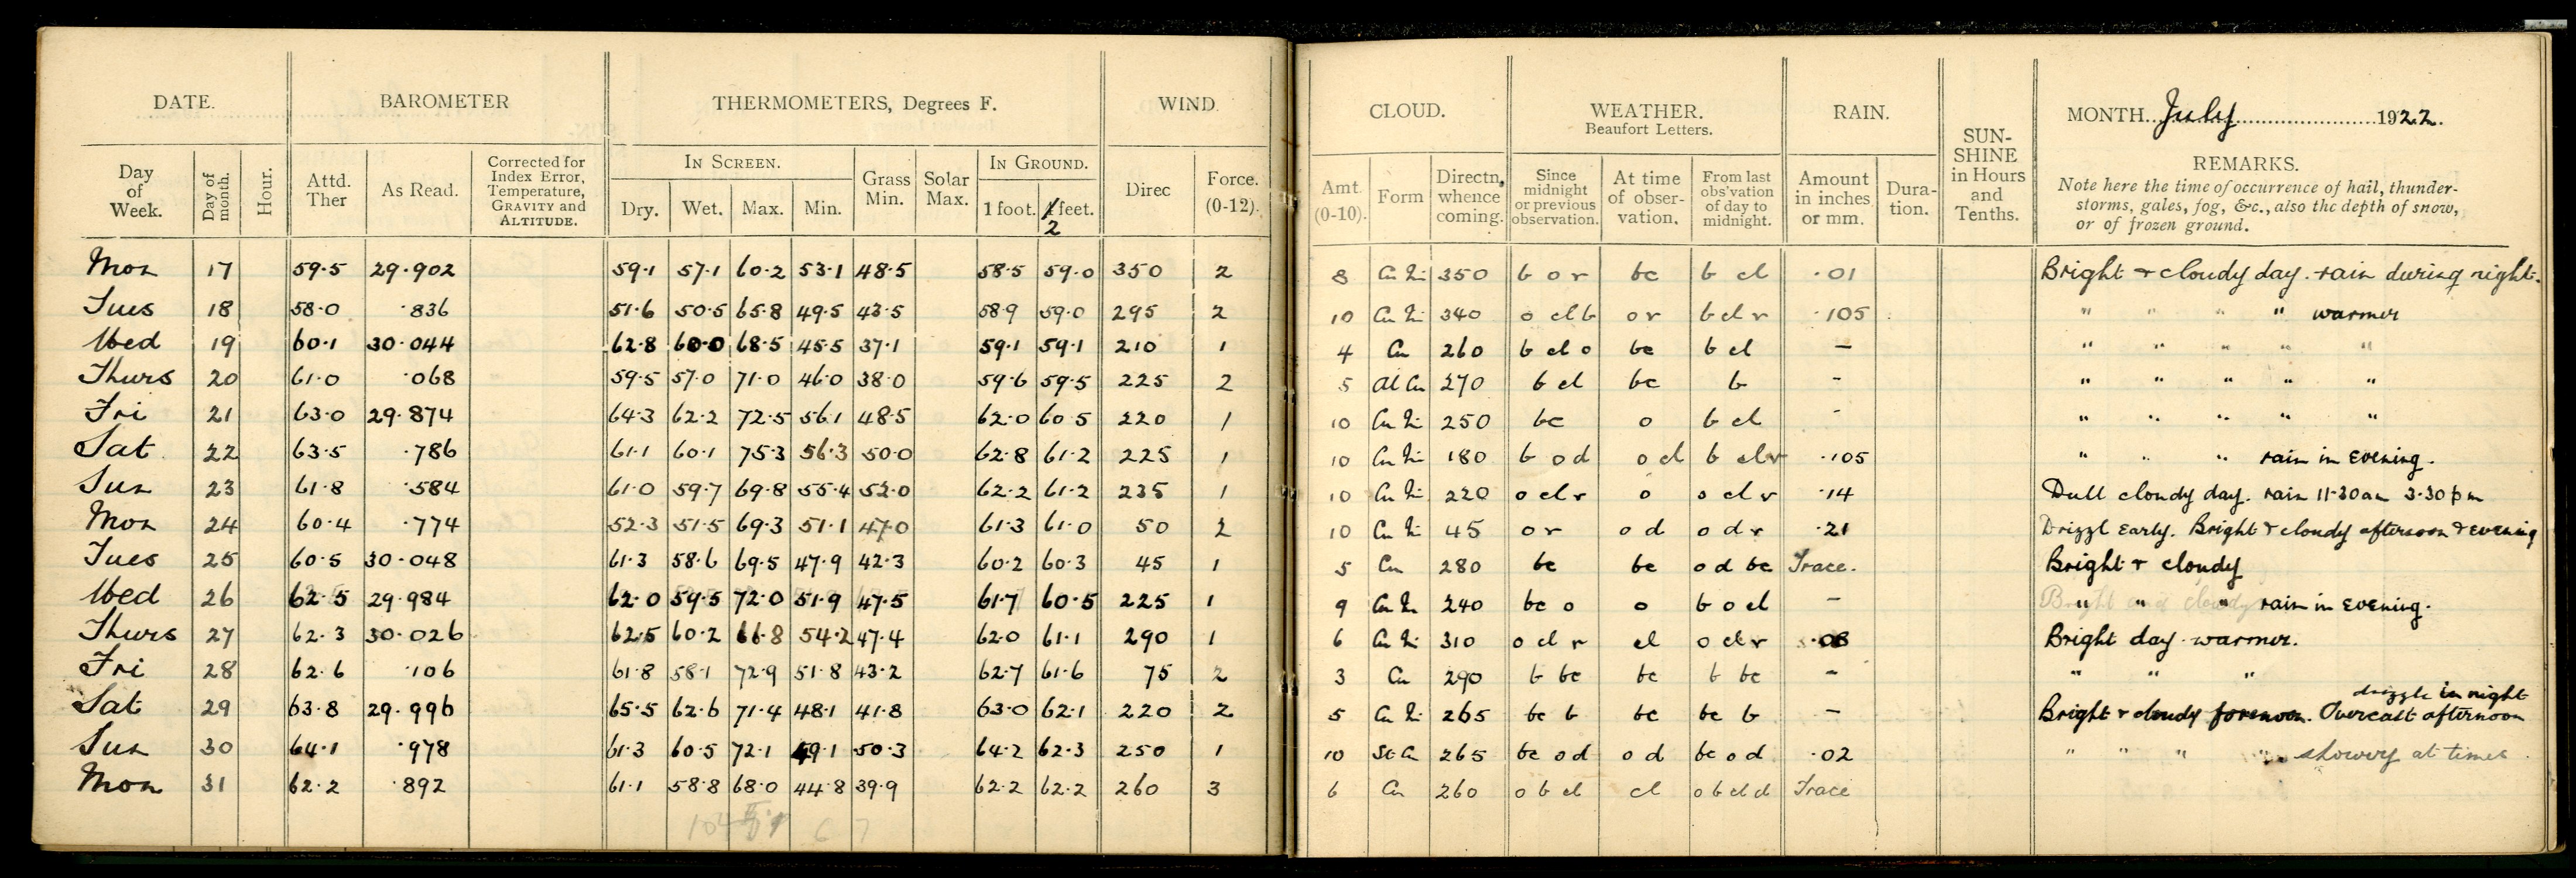 DATE. BAROMETER THERMOMETERS, Degrees F. WIND. CLOUD. WEATHER. Beaufort Letters. RAIN. SUN-SHINE in Hours and Tenths. MONTH July 1922.
Day of Week. Day of month. Hour. Attd. Ther As Read. Corrected for Index Error, Temperature, GRAVITY and ALTITUDE. IN SCREEN. Dry. Wet. Max. Min. Grass Min. Solar Max. IN GROUND. 1 foot. 2 feet. Direc Force. (0-12). Amt. (0-10). Form Directn, whence coming. Since midnight or previous observation. At time of obser-vation. From last obs'vation of day to midnight. Amount in inches or mm. Dura-tion. REMARKS.
Note here the time of occurrence of hail, thunder-
storms, gales, fog, &c., also the depth of snow,
or of frozen ground.
Mon 17 59.5 29.902 59.1 57.1 60.2 53.1 48.5 58.5 59.0 350 2 8 Cu Ni 350 b o r bc b cl .01 Bright & cloudy day. rain during night.
Tues 18 58.0 .836 51.6 50.5 65.8 49.5 43.5 58.9 59.0 295 2 10 Cu Ni 340 o cl b o r b cl r .105 " " " " warmer
Wed 19 60.1 30.044 62.8 60.0 68.5 45.5 37.1 59.1 59.1 210 1 4 Cu 260 b cl o bc b cl – " " " " "
Thurs 20 61.0 .068 59.5 57.0 71.0 46.0 38.0 59.6 59.5 225 2 5 Al Cu 270 b cl bc b - " " " " "
Fri 21 63.0 29.874 64.3 62.2 72.5 56.1 48.5 62.0 60.5 220 1 10 Cu Ni 250 bc o b cl - " " " " "
Sat 22 63.5 .786 61.1 60.1 75.3 56.3 50.0 62.8 61.2 225 1 10 Cu Ni 180 b o d o cl b cl r .105 " " " rain in Evening.
Sun 23 61.8 .584 61.0 59.7 69.8 55.4 52.0 62.2 61.2 235 1 10 Cu Ni 220 o cl r o o cl r .14 Dull cloudy day. rain 11.30am 3.30pm
Mon 24 60.4 .774 52.3 51.5 69.3 51.1 47.0 61.3 61.0 50 2 10 Cu Ni 45 o r o d o d r .21 Drizzl Early. Bright & cloudy afternoon & evening
Tues 25 60.5 30.048 61.3 58.6 69.5 47.9 42.3 60.2 60.3 45 1 5 Cu 280 bc bc o d bc Trace. Bright & cloudy
Wed 26 62.5 29.984 62.0 59.5 72.0 51.9 47.5 61.7 60.5 225 1 9 Cu Ni 240 bc o o b o cl – " " " rain in Evening.
Thurs 27 62.3 30.026 62.5 60.2 66.8 54.2 47.4 62.0 61.1 290 1 6 Cu Ni 310 o cl r cl o cl r .08 Bright day warmer.
Fri 28 62.6 .106 61.8 58.1 72.9 51.8 43.2 62.7 61.6 75 2 3 Cu 290 b bc bc b bc – " " "
drizzle in night
Sat 29 63.8 29.996 65.5 62.6 71.4 48.1 41.8 63.0 62.1 220 2 5 Cu Ni 265 bc b bc bc b – Bright & cloudy forenoon. Overcast afternoon
Sun 30 64.1 .978 61.3 60.5 72.1 49.1 50.3 64.2 62.3 250 1 10 St Cu 265 bc o d o d bc o d .02 " " " " showery at times
Mon 31 62.2 .892 61.1 58.8 68.0 44.8 39.9 62.2 62.2 260 3 6 Cu 260 o b cl cl o b cl d Trace